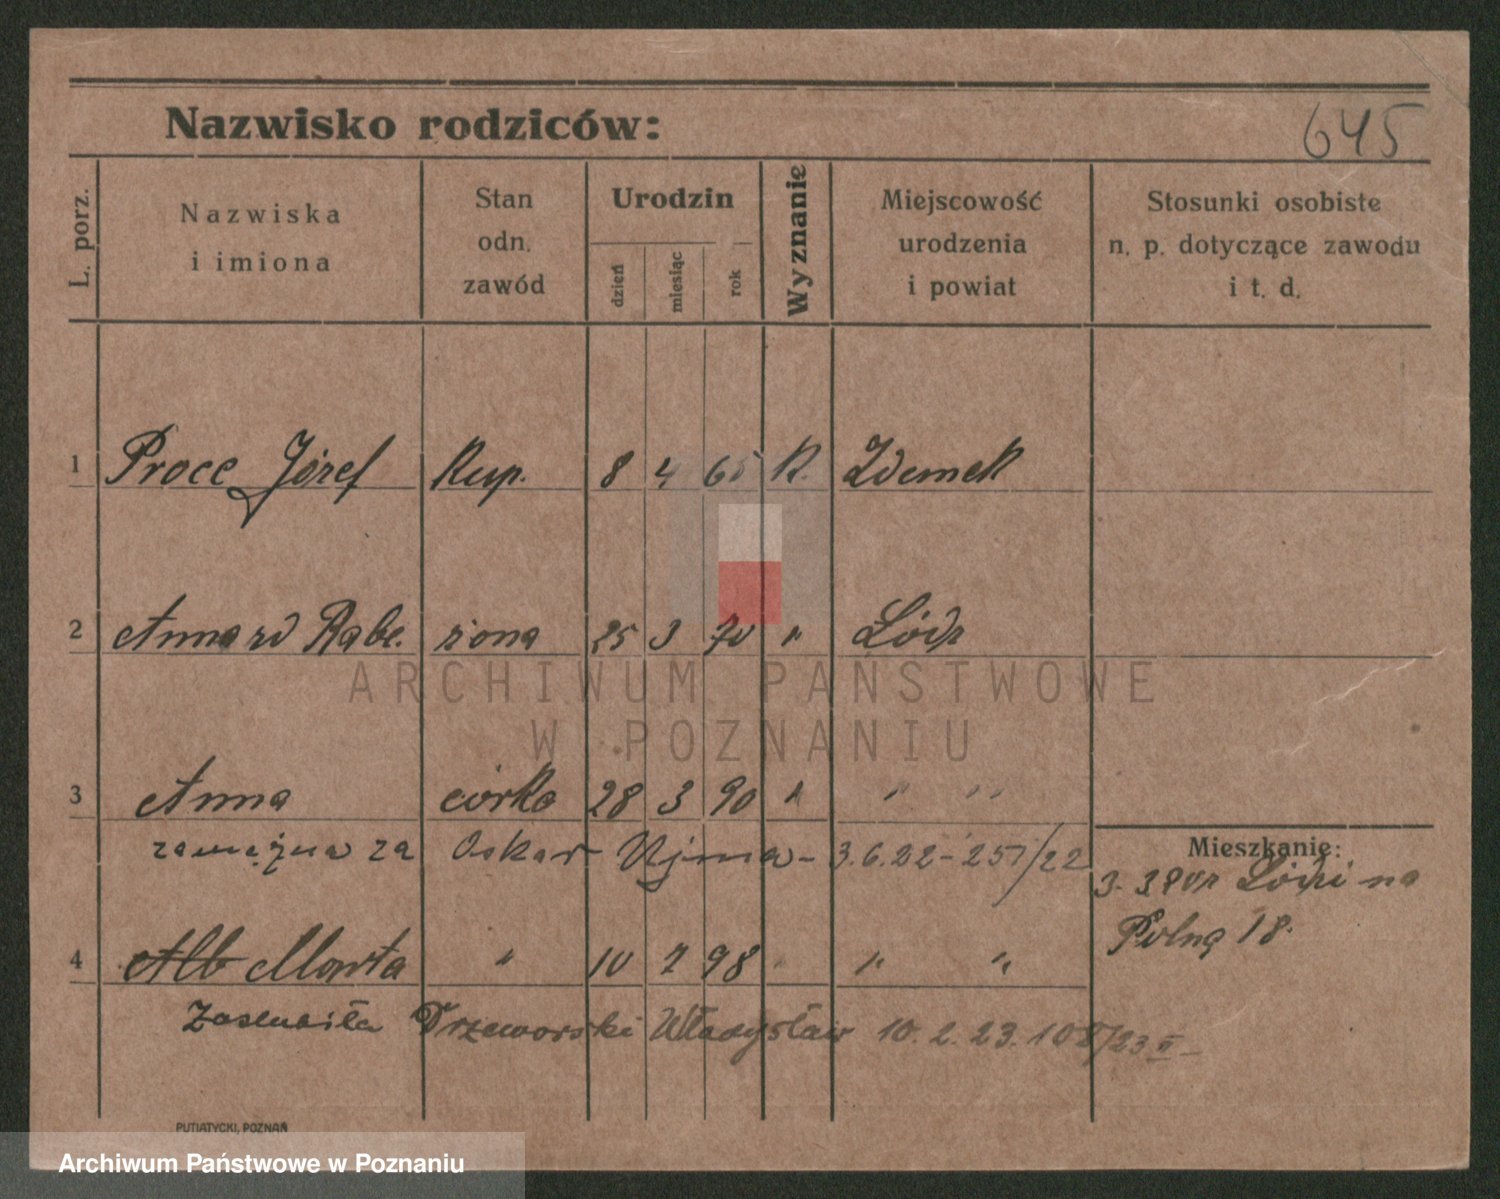 Nazwisko rodziców:
645
L. porz.
Nazwiska
i imiona
Stan
odn.
zawód
Urodzin
dzień
miesiąc
rok
Wyznanie
Miejscowość
urodzenia
i powiat
Stosunki osobiste
n. p. dotyczące zawodu
i t. d.
1 Proce Józef Kup. 8 4 65 K. Zdemek
2 Anna zd Rabe. żona 25 3 70 " Łódz
ARCHIWUM PAŃSTWOWE
W POZNANIU
3 Anna córka 28 3 90 " " "
zamężna za Oskar Ujma - 3.6.22 - 257/22
Mieszkanie:
3. Łodzi na
Polną 18.
4 Alb Marta " 10 7 98 " " "
Zaślubiła Drzeworski Władysław 10. 2. 23. 108/23 II -
PUTIATYCKI, POZNAŃ
Archiwum Państwowe w Poznaniu